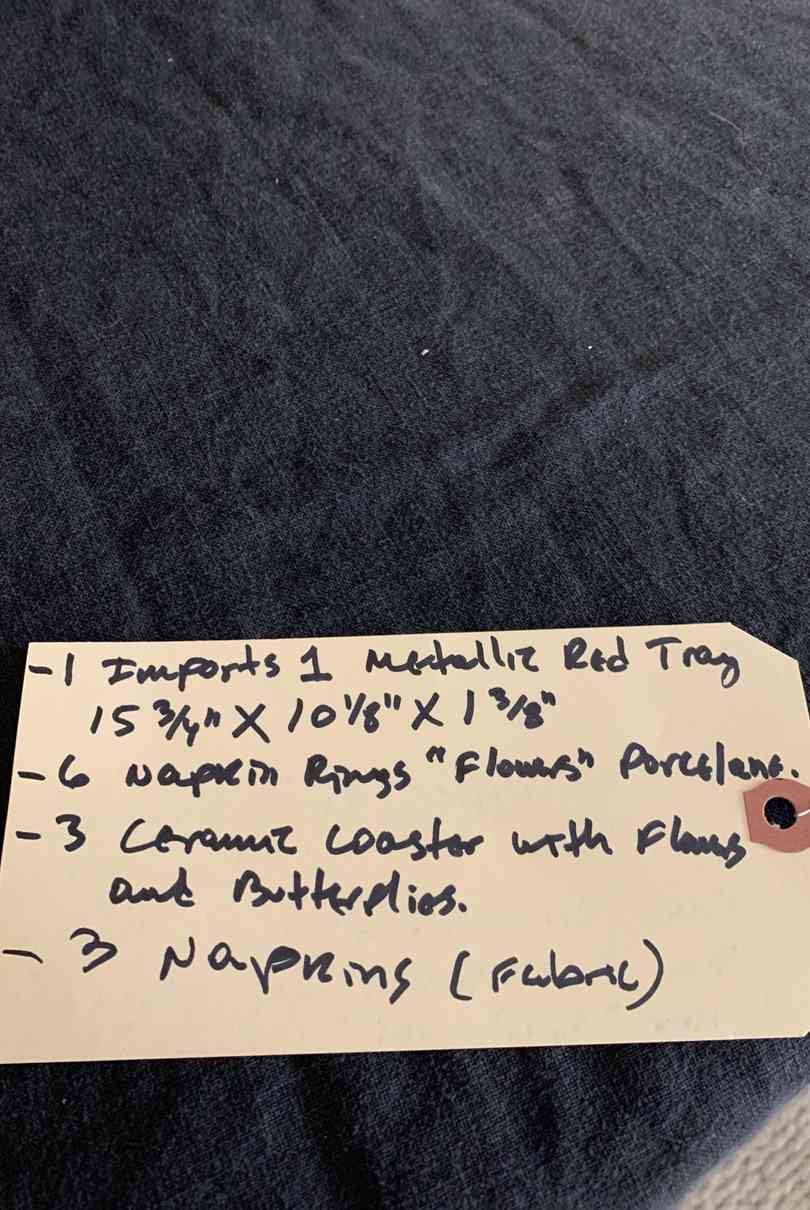 -1 Imports 1 Metallic Red Tray
15 3/4" X 10 1/8" X 1 3/8"
-6 Napkin Rings "Flowers" Porcelane.
-3 Ceramic Coaster with Flowers
and Butterflies.
- 3 Napkins (Fabric)